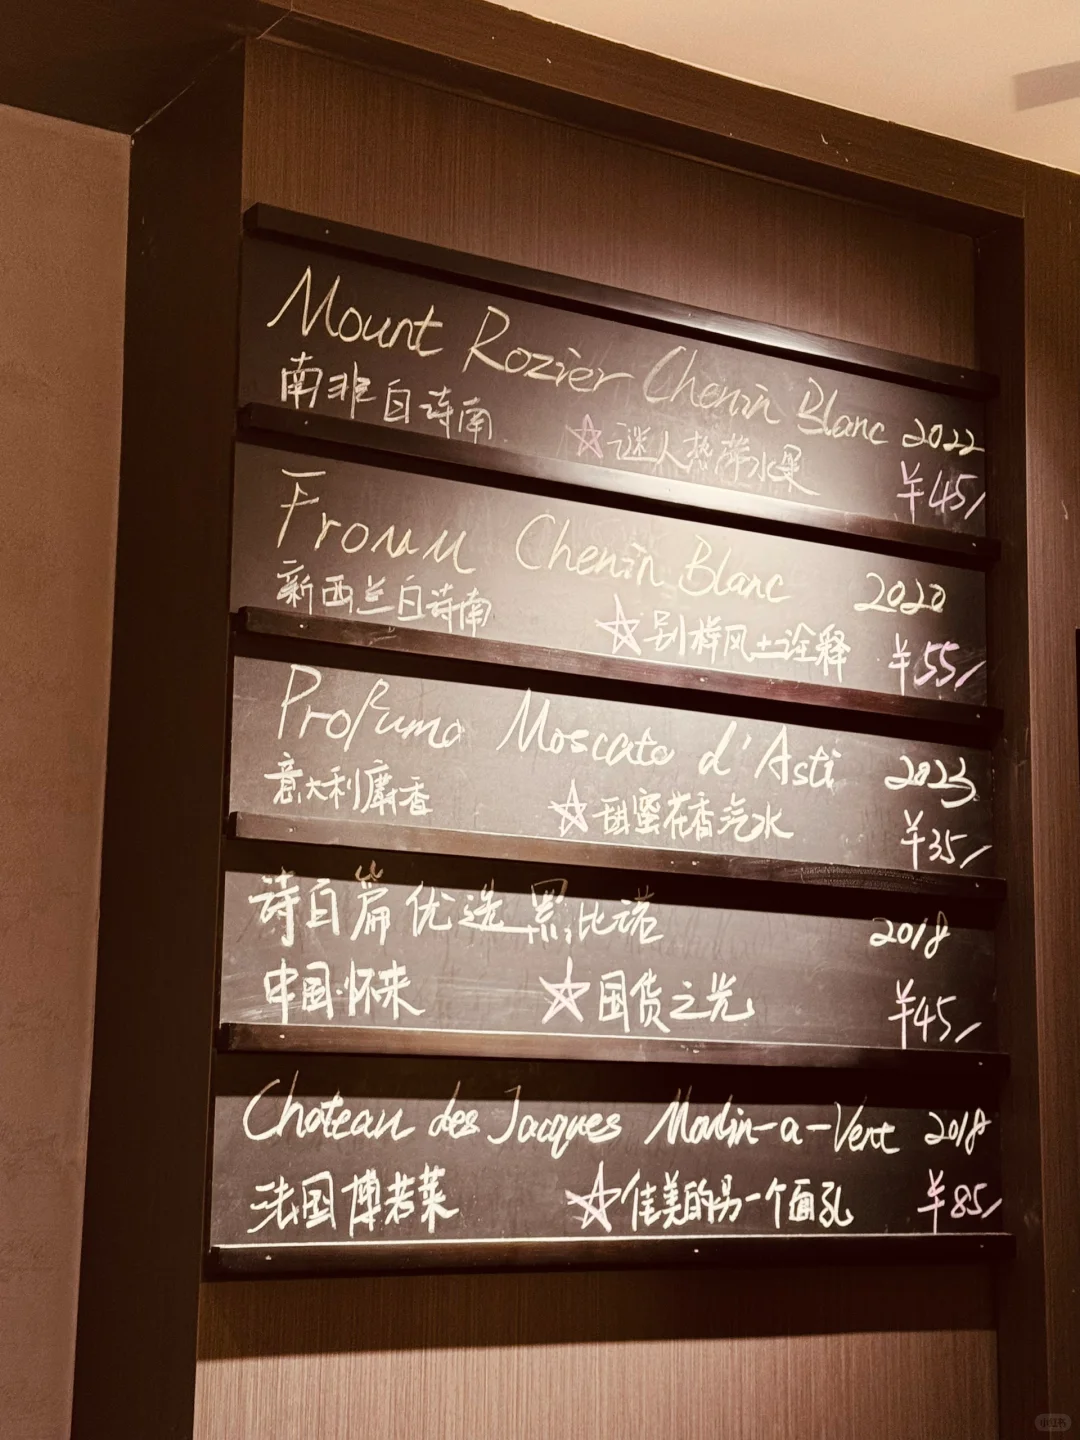 Mount Rozier Chenin Blanc 2022
南非白诗南 ☆谜人热带水果 ¥45/
Fromm Chenin Blanc 2020
新西兰白诗南 ☆别样风土诠释 ¥55/
Profumo Moscato d'Asti 2023
意大利麝香 ☆甜蜜花香汽水 ¥35/
诗百篇优选黑比诺 2018
中国·怀来 ☆国货之光 ¥45/
Chateau des Jacques Moulin-a-Vent 2018
法国博若莱 ☆佳美的另一个面孔 ¥85/
小红书